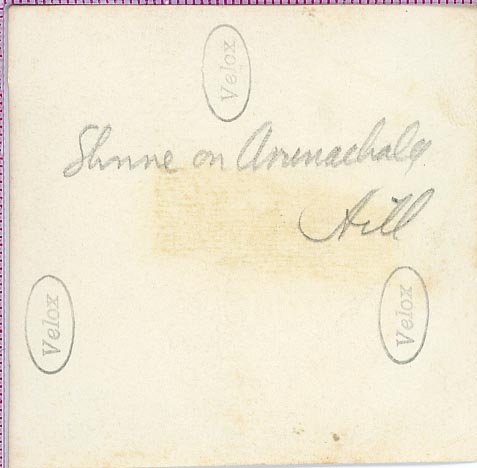 Velox
Shrine on Arunachala
Hill
Velox
Velox